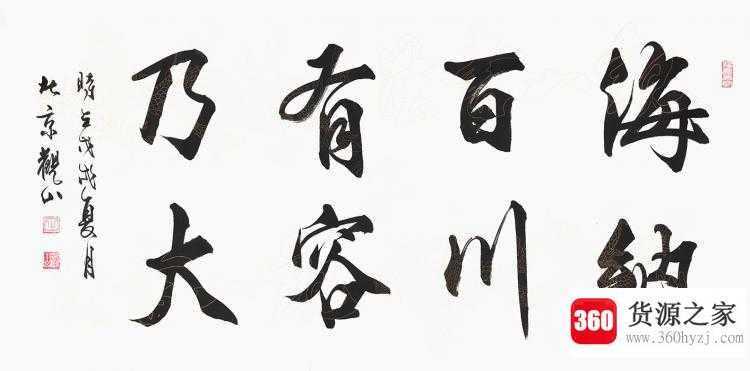 海纳
百川
有容
乃大
时在戊戌夏月
北京观山
360 货源之家
www.360hyzj.com